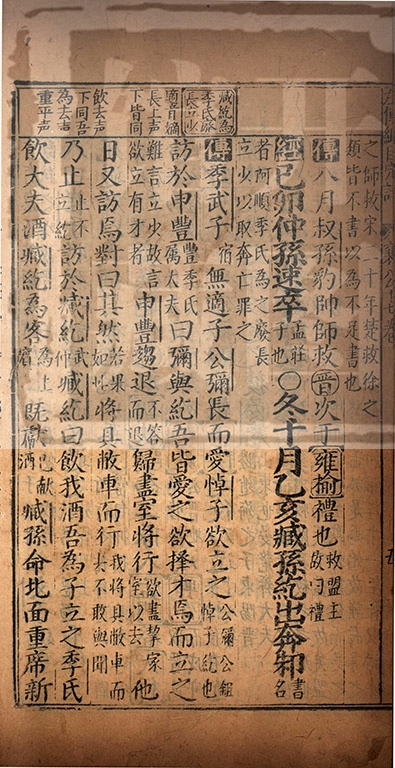 之師救宋二十年楚救徐之類皆不書以為不足書也
傳八月叔孫豹帥師救晉次于雍榆禮也救盟主故曰禮
經己卯仲孫速卒孟莊子也〇冬十月乙亥臧孫紇出奔邾書名
者阿順季氏為之廢長立少以取奔亡罪之
臧紇為季氏廢長立少
傳季武子宿無適子公彌長而愛悼子欲立之公彌公鉏悼子紇也
適音嫡長上声下皆同
訪於申豐豐季氏屬大夫曰彌與紇吾皆愛之欲擇才焉而立之
難言立少故言欲立有才者申豐趨退不答而退歸盡室將行欲盡挈家室以去他
飲去声下同吾為去声重平声
日又訪焉對曰其然若果如此將具敝車而行我將具敝車而去不敢與聞
乃止止不立紇訪於臧紇武仲臧紇曰飲我酒吾為子立之季氏
飲大夫酒臧紇為客為上賓既獻已獻酒臧孫命北面重席新